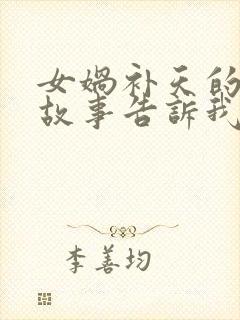 女媧补天的
故事告訴我
李善均